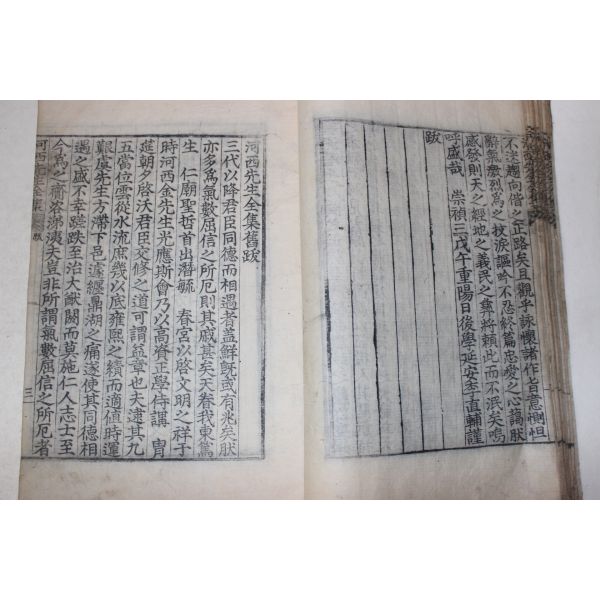 不迷趨向偕之正路矣且觀乎詠懷諸作旨意惻怛
辭氣激烈爲之抆淚謳吟不忍終篇忠愛之心藹然
感發則天之經地之義民之彝將賴此而不泯矣嗚
呼盛哉 崇禎三戊午重陽日後學延安李直輔謹
跋
河西先生全集舊跋
三代以降君臣同德而相遇者盖鮮旣或有兆矣然
亦多爲氣數屈信之所厄則其戚甚矣天眷我東篤
生 仁廟聖哲首出潛毓 春宮以啓文明之祥于
時河西金先生光應斯會乃以高賚正學侍講 胄
筵朝夕啓沃君臣交修之道可謂益章也夫逮其九
五當位雲從水流庶幾以底雍熙之績而適値時運
艱虞先生方滯下邑遽纏鼎湖之痛遂使其同德相
遇之盛不幸蹉跌至治大猷闕而莫施仁人志士至
今爲之齎咨涕洟夫豈非所謂氣數屈信之所厄者
河西先生全集 跋 三